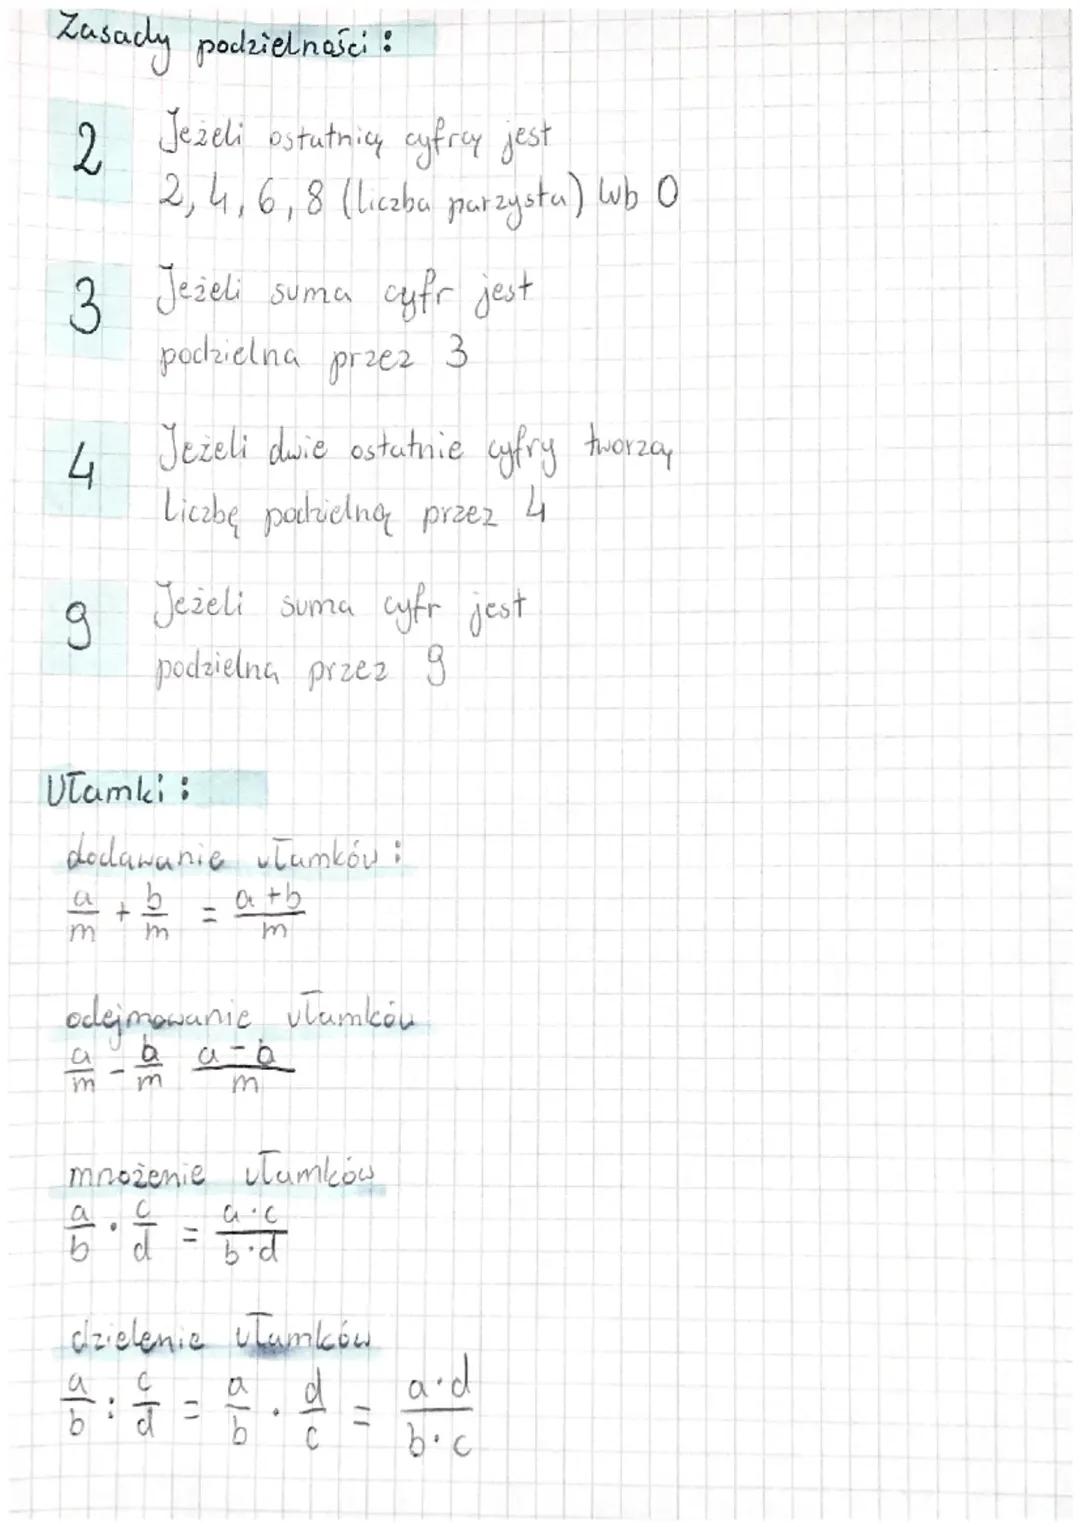 Zasady podzielności:
2 Jeżeli ostatnią cyfrą jest
2, 4, 6, 8 (liczba parzysta) lub 0
3 Jeżeli suma cyfr jest
podzielna przez 3
4 Jeżeli dwie ostatnie cyfry tworzą
liczbę podzielną przez 4
9 Jeżeli suma cyfr jest
podzielna przez 9
Ułamki:
dodawanie ułamków:
a/m + b/m = a+b/m
odejmowanie ułamków
a/m - b/m a-b/m
mnożenie ułamków
a/b · c/d = a·c/b·d
dzielenie ułamków
a/b : c/d = a/b · d/c = a·d/b·c